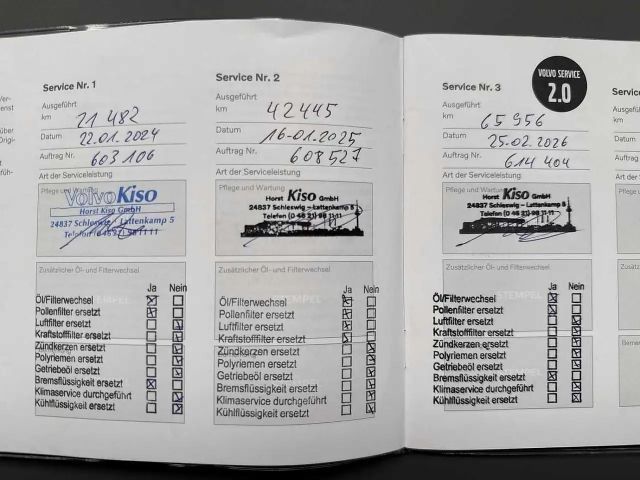 Service Nr. 1
Ausgeführt
km 21 482
Datum 22.01.2024
Auftrag Nr. 603 106
Art der Serviceleistung
Pflege und Wartung
Volvo Kiso
Horst Kiso GmbH
24837 Schleswig · Lattenkamp 5
Zusätzlicher Öl- und Filterwechsel
Ja Nein
Öl/Filterwechsel
Pollenfilter ersetzt
Luftfilter ersetzt
Kraftstofffilter ersetzt
Zündkerzen ersetzt
Polyriemen ersetzt
Getriebeöl ersetzt
Bremsflüssigkeit ersetzt
Klimaservice durchgeführt
Kühlflüssigkeit ersetzt
Service Nr. 2
Ausgeführt
km 42445
Datum 16-01.2025
Auftrag Nr. 608527
Art der Serviceleistung
Pflege und Wartung
Horst Kiso GmbH
24837 Schleswig – Lattenkamp 5
Telefon (0 46 21) 98 11-11
Zusätzlicher Öl- und Filterwechsel
STEMPEL
Ja Nein
Öl/Filterwechsel
Pollenfilter ersetzt
Luftfilter ersetzt
Kraftstofffilter ersetzt
Zündkerzen ersetzt
Polyriemen ersetzt
Getriebeöl ersetzt
Bremsflüssigkeit ersetzt
Klimaservice durchgeführt
Kühlflüssigkeit ersetzt
Service Nr. 3
VOLVO SERVICE
2.0
Ausgeführt
km 65 956
Datum 25.02.2026
Auftrag Nr. 614 404
Art der Serviceleistung
Pflege und Wartung
Horst Kiso GmbH
24837 Schleswig – Lattenkamp 5
Telefon (0 46 21) 98 11-11
Zusätzlicher Öl- und Filterwechsel
STEMPEL
Ja Nein
Öl/Filterwechsel
Pollenfilter ersetzt
Luftfilter ersetzt
Kraftstofffilter ersetzt
Zündkerzen ersetzt
Polyriemen ersetzt
Getriebeöl ersetzt
Bremsflüssigkeit ersetzt
Klimaservice durchgeführt
Kühlflüssigkeit ersetzt